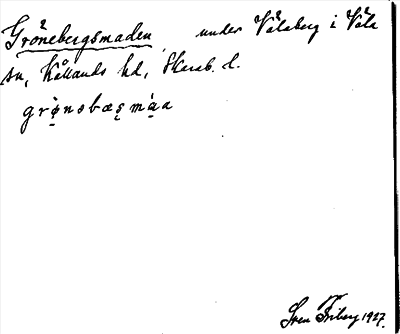 Grönebergsmaden under Välaberg i Väla
sn, Kållands hd, Skarab. l.
grø̀nəbæs̨ màa
Sven Friberg 1927.